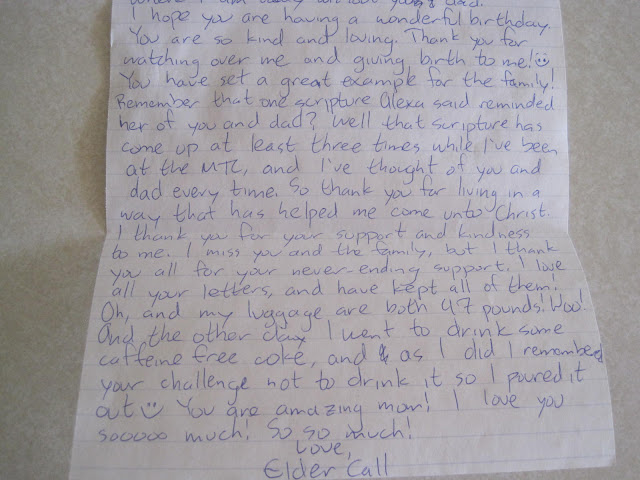 I hope you are having a wonderful birthday.
You are so kind and loving. Thank you for
watching over me and giving birth to me!
You have set a great example for the family!
Remember that one scripture Alexa said reminded
her of you and dad? Well that scripture has
come up at least three times while I've been
at the MTC, and I've thought of you and
dad every time. So thank you for living in a
way that has helped me come unto Christ.
I thank you for your support and kindness
to me. I miss you and the family, but I thank
you all for your never-ending support. I love
all your letters, and have kept all of them.
Oh, and my luggage are both 47 pounds! Woo!
And the other day I went to drink some
caffeine free coke, and as I did I remembered
your challenge not to drink it so I poured it
out You are amazing mom! I love you
sooooo much! So so much!
Love,
Elder Call